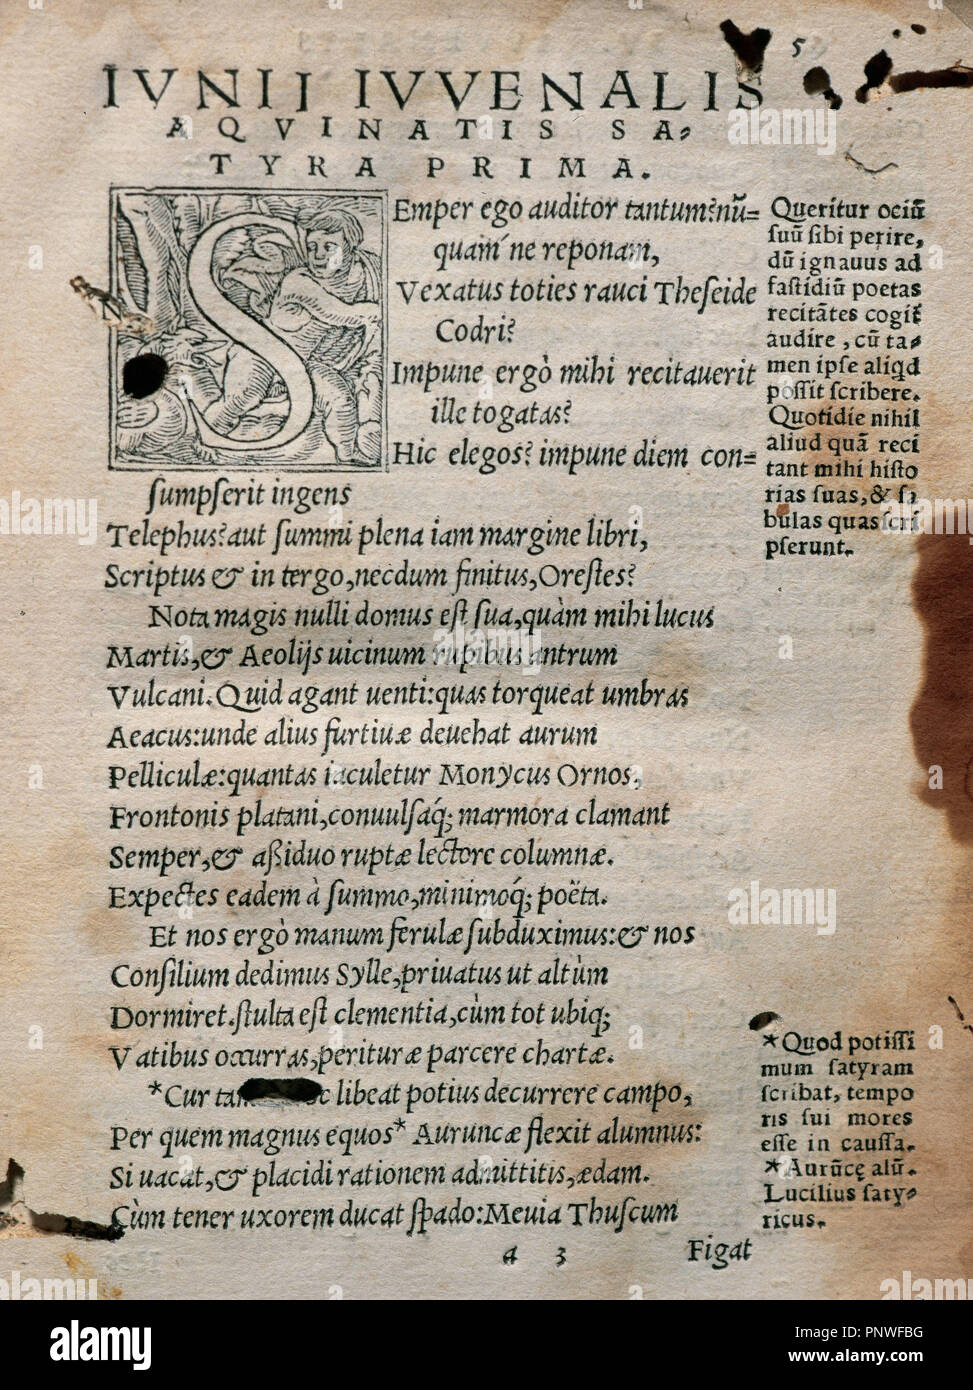 5
IVNIJ IVVENALIS
AQVINATIS SA-
TYRA PRIMA.
SEmper ego auditor tantum?nū=
quam´ne reponam,
Vexatus toties rauci Theseide
Codri?
Impune ergò mihi recitauerit
ille togatas?
Hic elegos? impune diem con=
sumpserit ingens
Telephus?aut summi plena iam margine libri,
Scriptus & in tergo,necdum finitus,Orestes?
Nota magis nulli domus est sua,quàm mihi lucus
Martis,& Aeolijs uicinum rupibus antrum
Vulcani.Quid agant uenti:quas torqueat umbras
Aeacus:unde alius furtiuæ deuehat aurum
Pelliculæ:quantas iaculetur Monycus Ornos,
Frontonis platani,conuulsaq; marmora clamant
Semper,& aßiduo ruptæ lectore columnæ.
Expectes eadem à summo,minimoq; poëta.
Et nos ergò manum ferulæ subduximus:& nos
Consilium dedimus Sylle,priuatus ut altùm
Dormiret.stulta est clementia,cùm tot ubiq;
Vatibus occurras,perituræ parcere chartæ.
*Cur libeat potius decurrere campo,
Per quem magnus equos* Auruncæ flexit alumnus:
Si uacat,& placidi rationem admittitis,ædam.
Cùm tener uxorem ducat spado:Meuia Thuscum
a 3 Figat
Queritur ociū
suū sibi perire,
dū ignauus ad
fastidiū poetas
recitātes cogit̄
audire, cū ta-
men ipse aliqd
possit scribere.
Quotidie nihil
aliud quā reci
tant mihi histo
rias suas,& fa
bulas quas scri
pserunt.
*Quod potissi
mum satyram
scribat, tempo
ris sui mores
esse in caussa.
*Aurūcę alū.
Lucilius saty-
ricus.
alamy
Image ID: PNWFBG
www.alamy.com